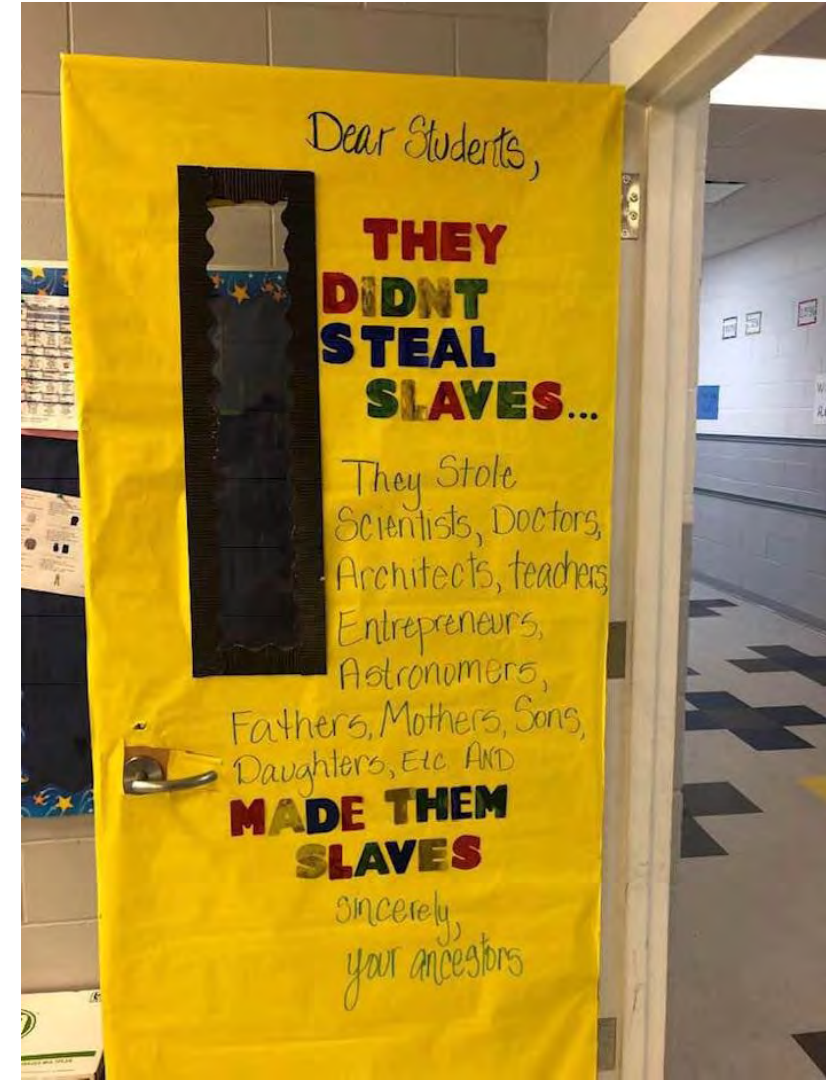 Dear Students,
THEY
DIDNT
STEAL
SLAVES...
They Stole
Scientists, Doctors,
Architects, teachers,
Entrepreneurs,
Astronomers,
Fathers, Mothers, Sons,
Daughters, Etc AND
MADE THEM
SLAVES
Sincerely,
your ancestors